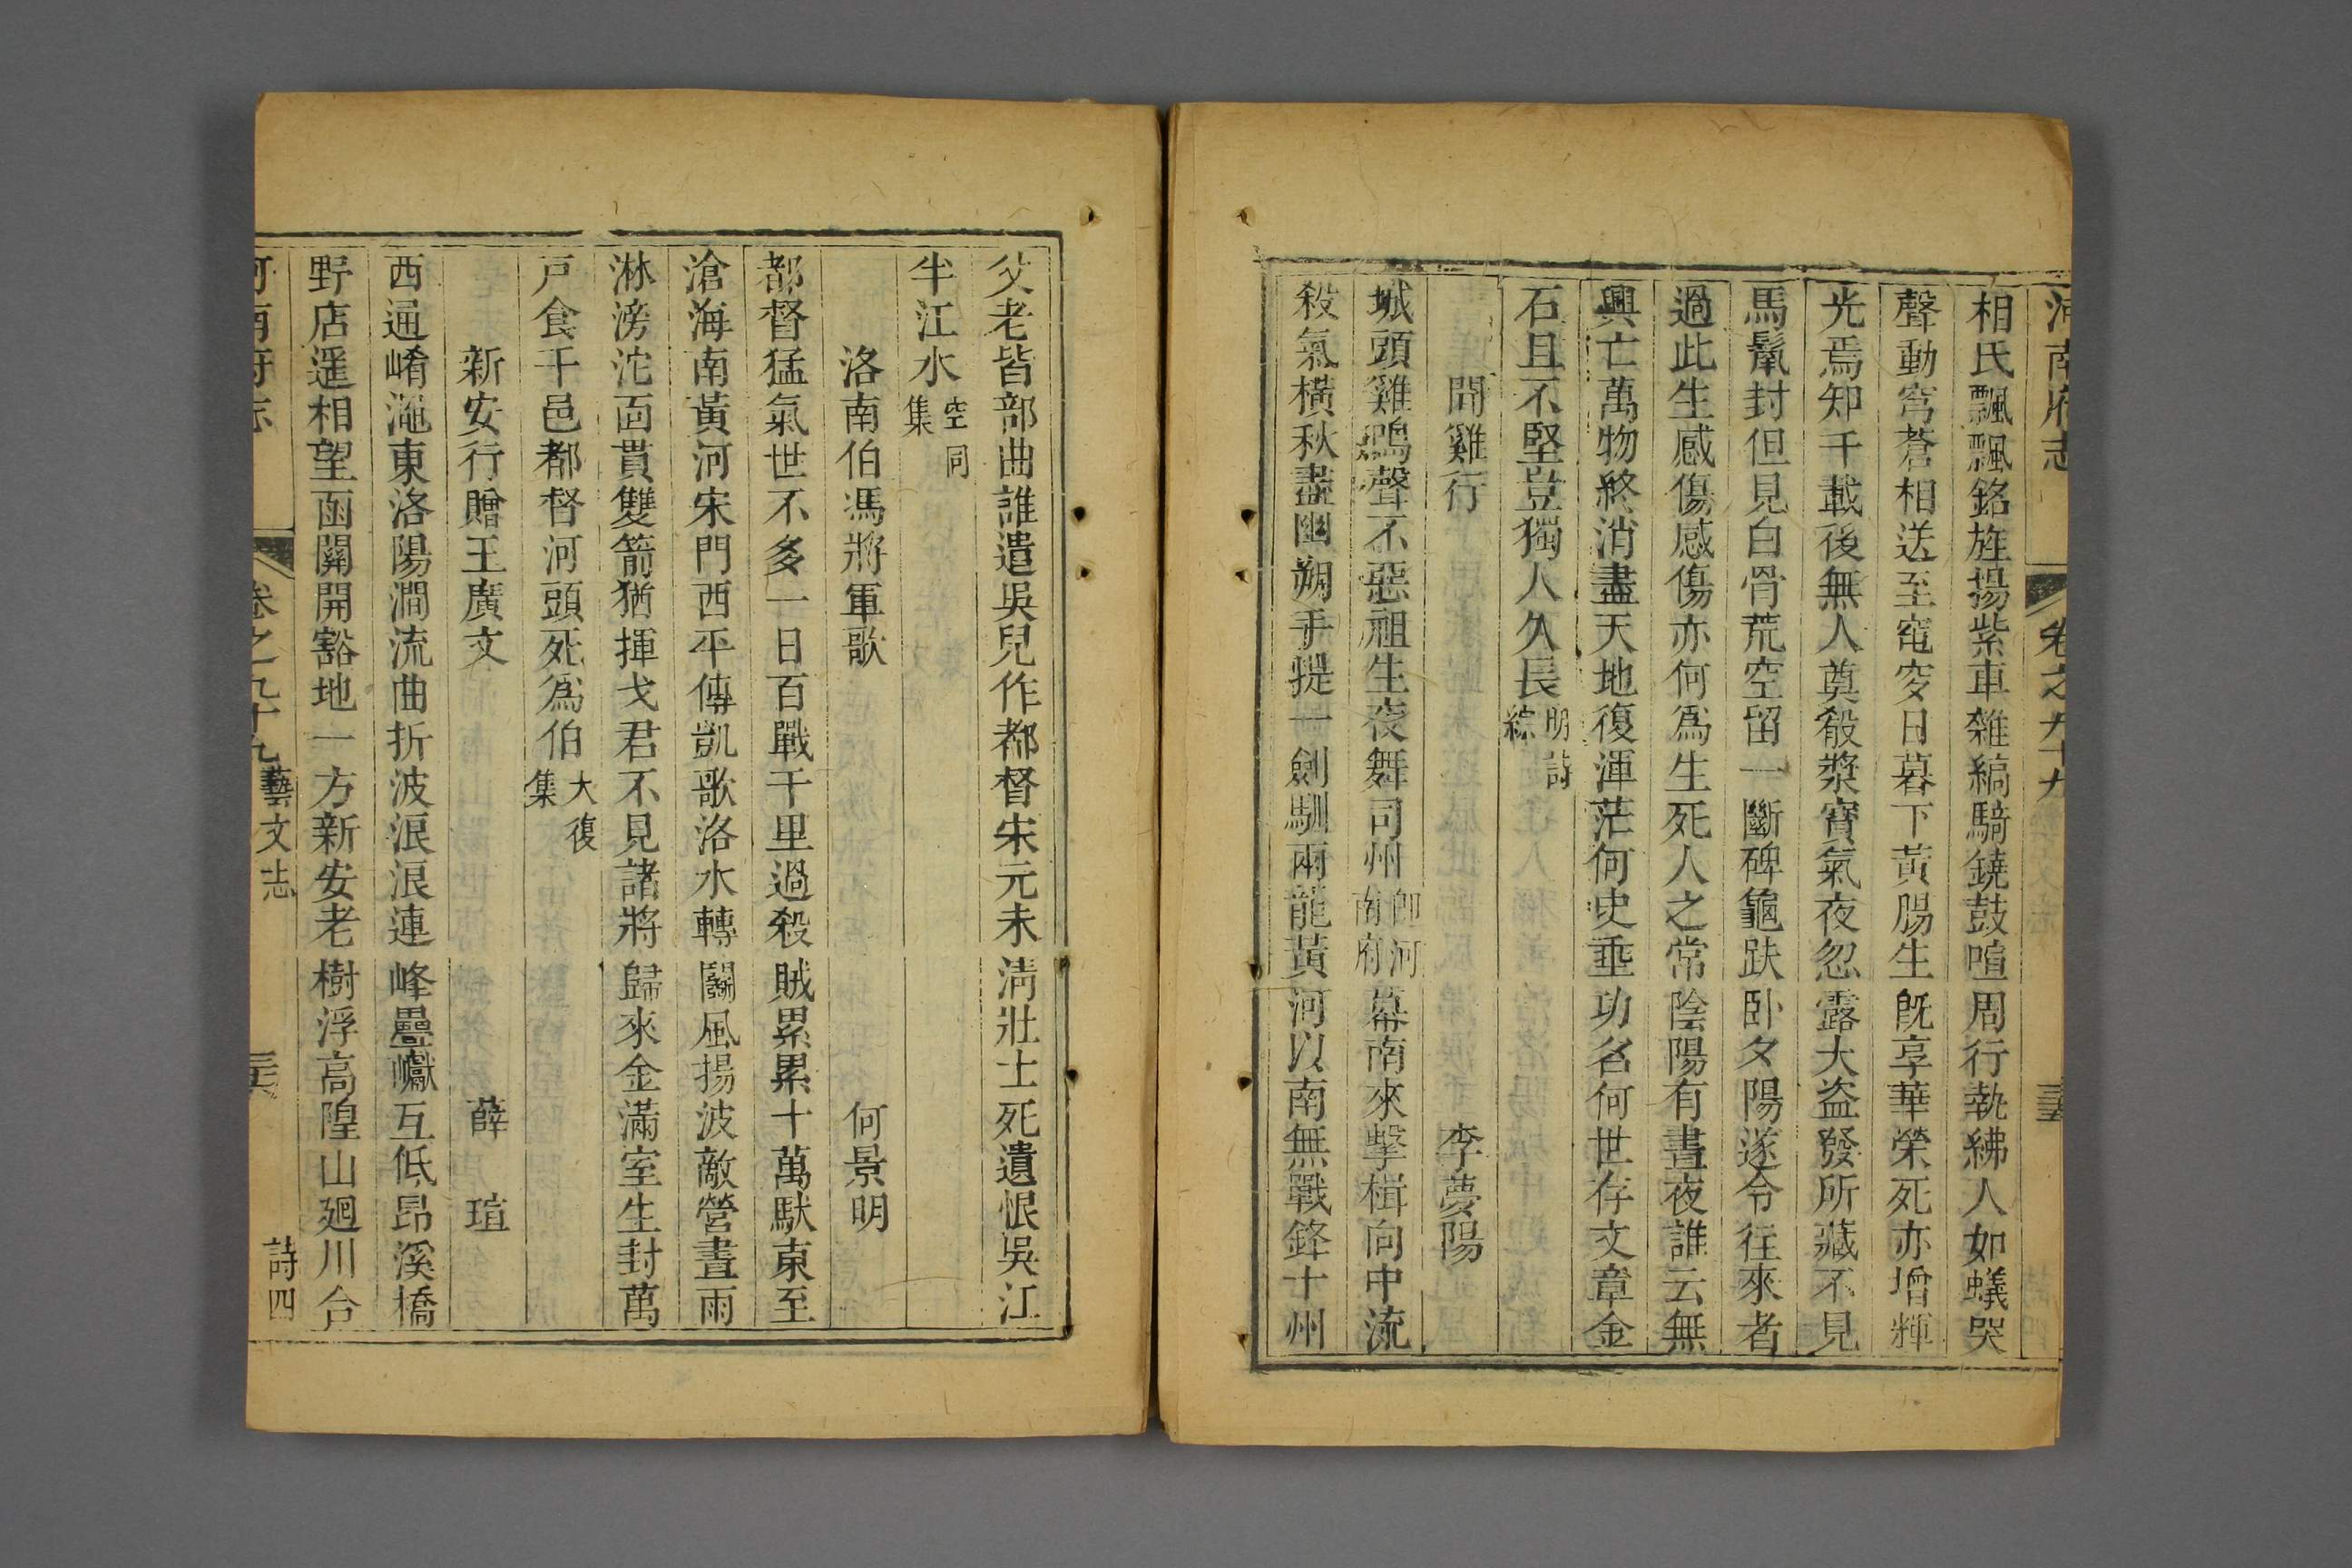 河南府志 卷之九十九 三五
相氏飄飄銘旌揚紫車雜縞騎鐃鼓喧周行執紼人如蟻哭
聲動穹蒼相送至窀穸日暮下黃腸生既享華榮死亦增輝
光焉知千載後無人奠殽漿寶氣夜忽露大盗發所藏不見
馬鬣封但見白骨荒空留一斷碑龜趺卧夕陽遂令往來者
過此生感傷感傷亦何爲生死人之常陰陽有晝夜誰云無
興亡萬物終消盡天地復渾茫何史垂功名何世存文章金
石且不堅豈獨人久長明詩綜
聞雞行 李夢陽
城頭雞鳴聲不惡祖生夜舞司州卽河南府幕南來擊楫向中流
殺氣橫秋盡幽朔手提一劍馴兩龍黃河以南無戰鋒十州
父老皆部曲誰遣吳兒作都督宋元未淸壯士死遺恨吳江
半江水空同集
洛南伯馮將軍歌 何景明
都督猛氣世不多一日百戰千里過殺賊累累十萬馱東至
滄海南黃河宋門西平傳凱歌洛水轉鬭風揚波敵營晝雨
淋滂沱面貫雙箭猶揮戈君不見諸將歸來金滿室生封萬
戸食千邑都督河頭死爲伯大復集
新安行贈王廣文 薛瑄
西通崤澠東洛陽澗流曲折波浪浪連峰疊巘互低昂溪橋
野店遥相望函關開豁地一方新安老樹浮高隍山廻川合
河南府志 卷之九十九 藝文志 三六 詩四